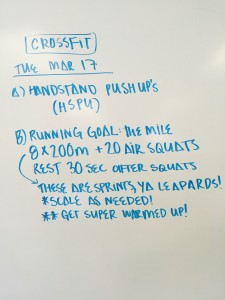 CROSSFIT
TUE MAR 17
A) HANDSTAND PUSHUP'S
(HSPU)
B) RUNNING GOAL: the MILE
8 x 200m + 20 AIR SQUATS
REST 30 SEC AFTER SQUATS
THESE ARE SPRINTS, YA LEAPARDS!
*SCALE AS NEEDED!
** GET SUPER WARMED UP!